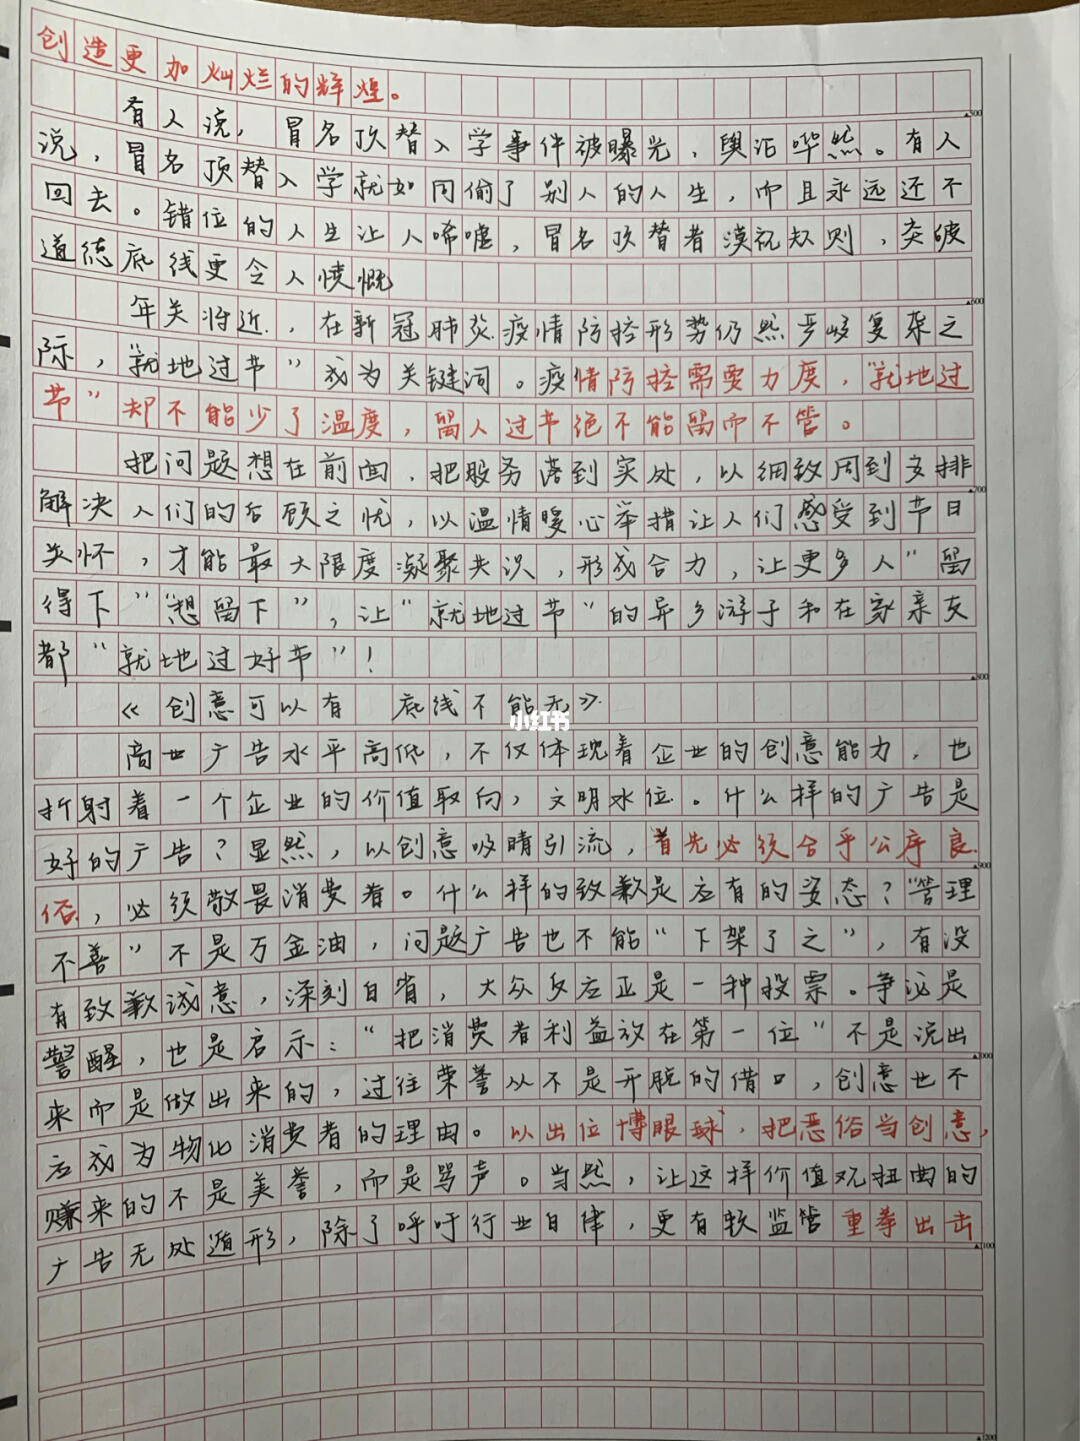 创造更加灿烂的辉煌。
有人说，冒名顶替入学事件被曝光，舆论哗然。有人
说，冒名顶替入学就如同偷了别人的人生，而且永远还不
回去。错位的人生让人唏嘘，冒名顶替者漠视规则，突破
道德底线更令人愤慨
年关将近，在新冠肺炎疫情防控形势仍然严峻复杂之
际，“就地过节”成为关键词。疫情防控需要力度，“就地过
节”却不能少了温度，留人过节绝不能留而不管。
把问题想在前面，把服务落到实处，以细致周到安排
解决人们的后顾之忧，以温情暖心举措让人们感受到节日
关怀，才能最大限度凝聚共识，形成合力，让更多人“留
得下”“想留下”，让“就地过节”的异乡游子和在家亲友
都“就地过好节”！
《创意可以有 底线不能无》
商业广告水平高低，不仅体现着企业的创意能力，也
折射着一个企业的价值取向，文明水位。什么样的广告是
好的广告？显然，以创意吸睛引流，首先必须合乎公序良
俗，必须敬畏消费者。什么样的致歉是应有的姿态？“管理
不善”不是万金油，问题广告也不能“下架了之”，有没
有致歉诚意，深刻自省，大众反应正是一种投票。争议是
警醒，也是启示：“把消费者利益放在第一位”不是说出
来而是做出来的，过往荣誉从不是开脱的借口，创意也不
应成为物化消费者的理由。以出位博眼球，把恶俗当创意，
赚来的不是美誉，而是骂声。当然，让这样价值观扭曲的
广告无处遁形，除了呼吁行业自律，更有软监管重拳出击
1000
1100
1200
500
600
700
800
900
小红书